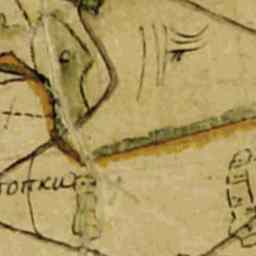 топки